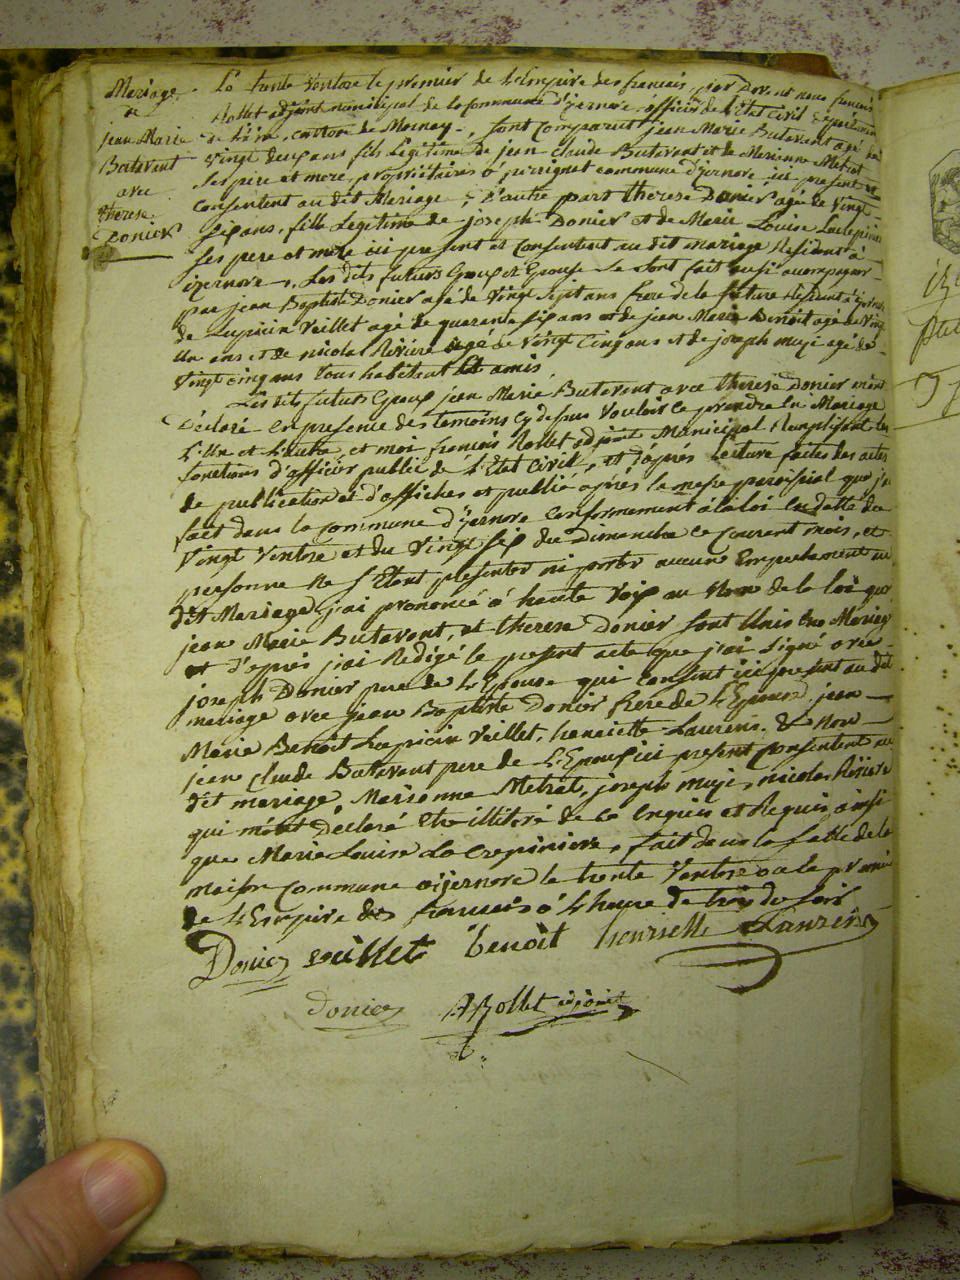 Mariage
de
jean Marie
Butavent
avec
therese
Donier
Le trente Ventose le premier de L'Empire des francais, par Devant nous francois
Rollet adjoint municipal de la Commune d'izernore, officier de L'Etat Civil Departement
de L'ain, canton de Mornay, sont Comparut jean Marie Butavent agé de
Vingt deux ans fils Legitime de jean Claude Butavent et de Marianne Metrat
ses pere et mere, propriétaires a perignat commune d'izernore ici present et
Consentent au dit Mariage ; D'autre part therese Donier agée de Vingt
Six ans, fille Legitime de joseph Donier et de Marie Louise Lacrepiniere
ses pere et mere ici present et Consentent au dit mariage Residant à
izernore, Les dits futurs Epoux et Epouse se sont fait aussi accompagner
par jean Baptiste Donier agé de Vingt Sept ans frere de la future Residant à izernore
de Lupicin Veillet agé de quarente six ans et de jean Marie Benoit agé de Vingt
Un ans et de nicolas Riviere agé de Vingt Cinq ans et de joseph muzi agé de
Vingt cinq ans tous habitent et amis.
Les dits futurs Epoux jean Marie Butavent avec therese Donier m'ont
Déclaré en presence des temoins Cy dessus Vouloir se prendre En Mariage
L'Un et L'autre, et moi francois Rollet adjoint Municipal Remplissant les
fonctions d'officier public de L'Etat Civil, et D'après Lecture faites des actes
de publication et d'affiches et publié après la messe paroissial que j'ai
fait dans la Commune d'izernore Conformement à la loi En datte du
Vingt Ventose et du Vingt Six du Dimanche ce Courant mois, et
personne ne s'Etent présenter ni porter aucun Empechement au
dit Mariage, j'ai prononcé à haute Voix au Nom de la loi que
jean Marie Butavent, et therese Donier sont Unis En Mariage
et d'après j'ai Redigé le present acte que j'ai Signé avec
joseph Donier pere de L'Epouse qui consent ici present au dit
mariage avec jean Baptiste Donier frere de L'Epouse, jean
Marie Benoit Lupicin Veillet, henriette Laurens, & non
jean Claude Butavent pere de L'Epoux ici present Consentent au
dit mariage, Marianne Metrat, joseph muzi, nicolas Riviere
qui m'ont Déclaré Etre illitéré de ce Enquis et Requis ainsi
que Marie Louise La Crepiniere, fait dans la salle de la
maison Commune d'izernore le trente Ventose ou le premier
de L'Empire des francais à L'heure de trois du Soir
Donier veillet benoît henriette Laurens
donier F Rollet adjoint